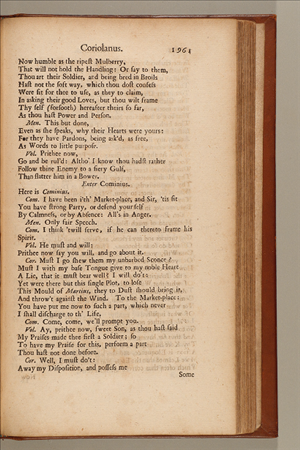 Coriolanus. 1961
Now humble as the ripest Mulberry,
That will not hold the Handling: Or say to them,
Thou art their Soldier, and being bred in Broils
Hast not the soft way, which thou dost confess
Were fit for thee to use, as they to claim,
In asking their good Loves, but thou wilt frame
Thy self (forsooth) hereafter theirs so far,
As thou hast Power and Person.
Men. This but done,
Even as she speaks, why their Hearts were yours:
For they have Pardons, being ask'd, as free,
As Words to little purpose.
Vol. Prithee now,
Go and be rul'd: Altho' I know thou hadst rather
Follow thine Enemy to a fiery Gulf,
Than flatter him in a Bower.
Enter Cominius.
Here is Cominius.
Com. I have been i'th' Market-place, and Sir, 'tis fit
You have strong Party, or defend your self
By Calmness, or by Absence: All's in Anger.
Men. Only fair Speech.
Com. I think 'twill serve, if he can thereto frame his
Spirit.
Vol. He must and will:
Prithee now say you will, and go about it.
Cor. Must I go shew them my unbarbed Sconce?
Must I with my base Tongue give to my noble Heart
A Lie, that it must bear well? I will do't:
Yet were there but this single Plot, to lose
This Mould of Martius, they to Dust should being it,
And throw't against the Wind. To the Market-place:
You have put me now to such a part, which never
I shall discharge to th' Life.
Com. Come, come, we'll prompt you.
Vol. Ay, prithee now, sweet Son, as thou hast said
My Praises made thee first a Soldier; so
To have my Praise for this, perform a part
Thou hast not done before.
Cor. Well, I must do't:
Away my Disposition, and possess me
Some